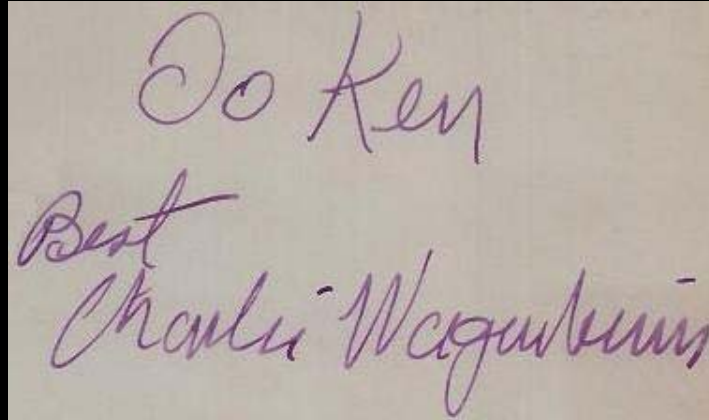 To Ken
Best
Charlie Wagenheim